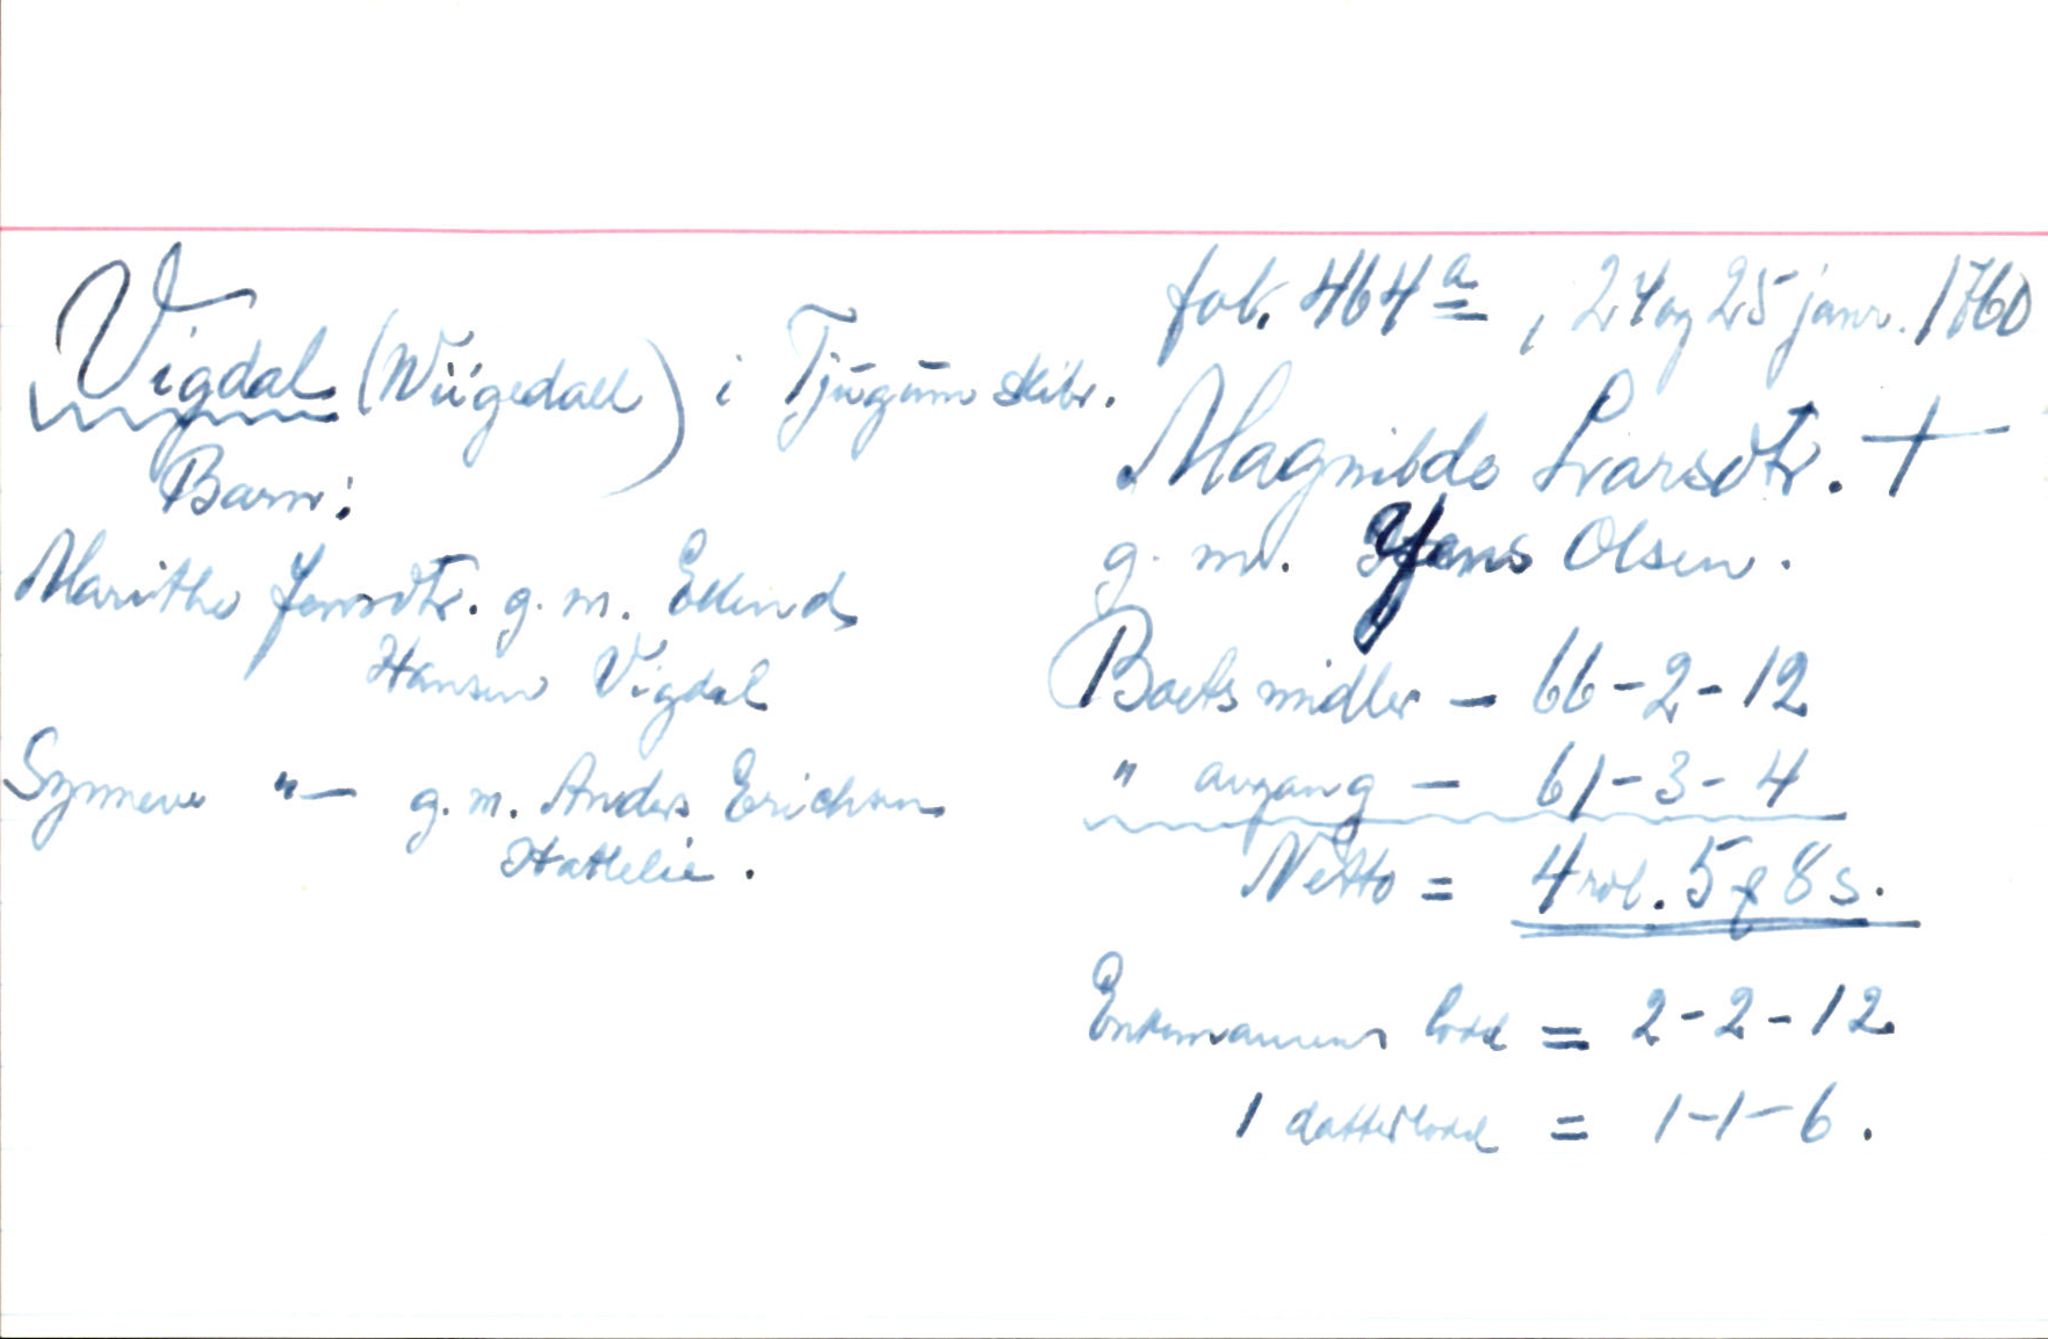 fol. 464a, 24 og 25 janr. 1760
Vigdal (Wiigedall) i Tjugum skibr.
Magnilde Ivarsdtr. +
g. m. Jens Olsen.
Barn:
Marithe Jensdtr. g. m. Ellend
Hansen Vigdal
Synneve "— g. m. Anders Erichsen
Hattelie.
Boets midler — 66-2-12
" avgang — 61-3-4
Netto = 4 rdl. 5 ¢ 8 s.
Enkemannens lodd = 2-2-12
1 datterlodd = 1-1-6.